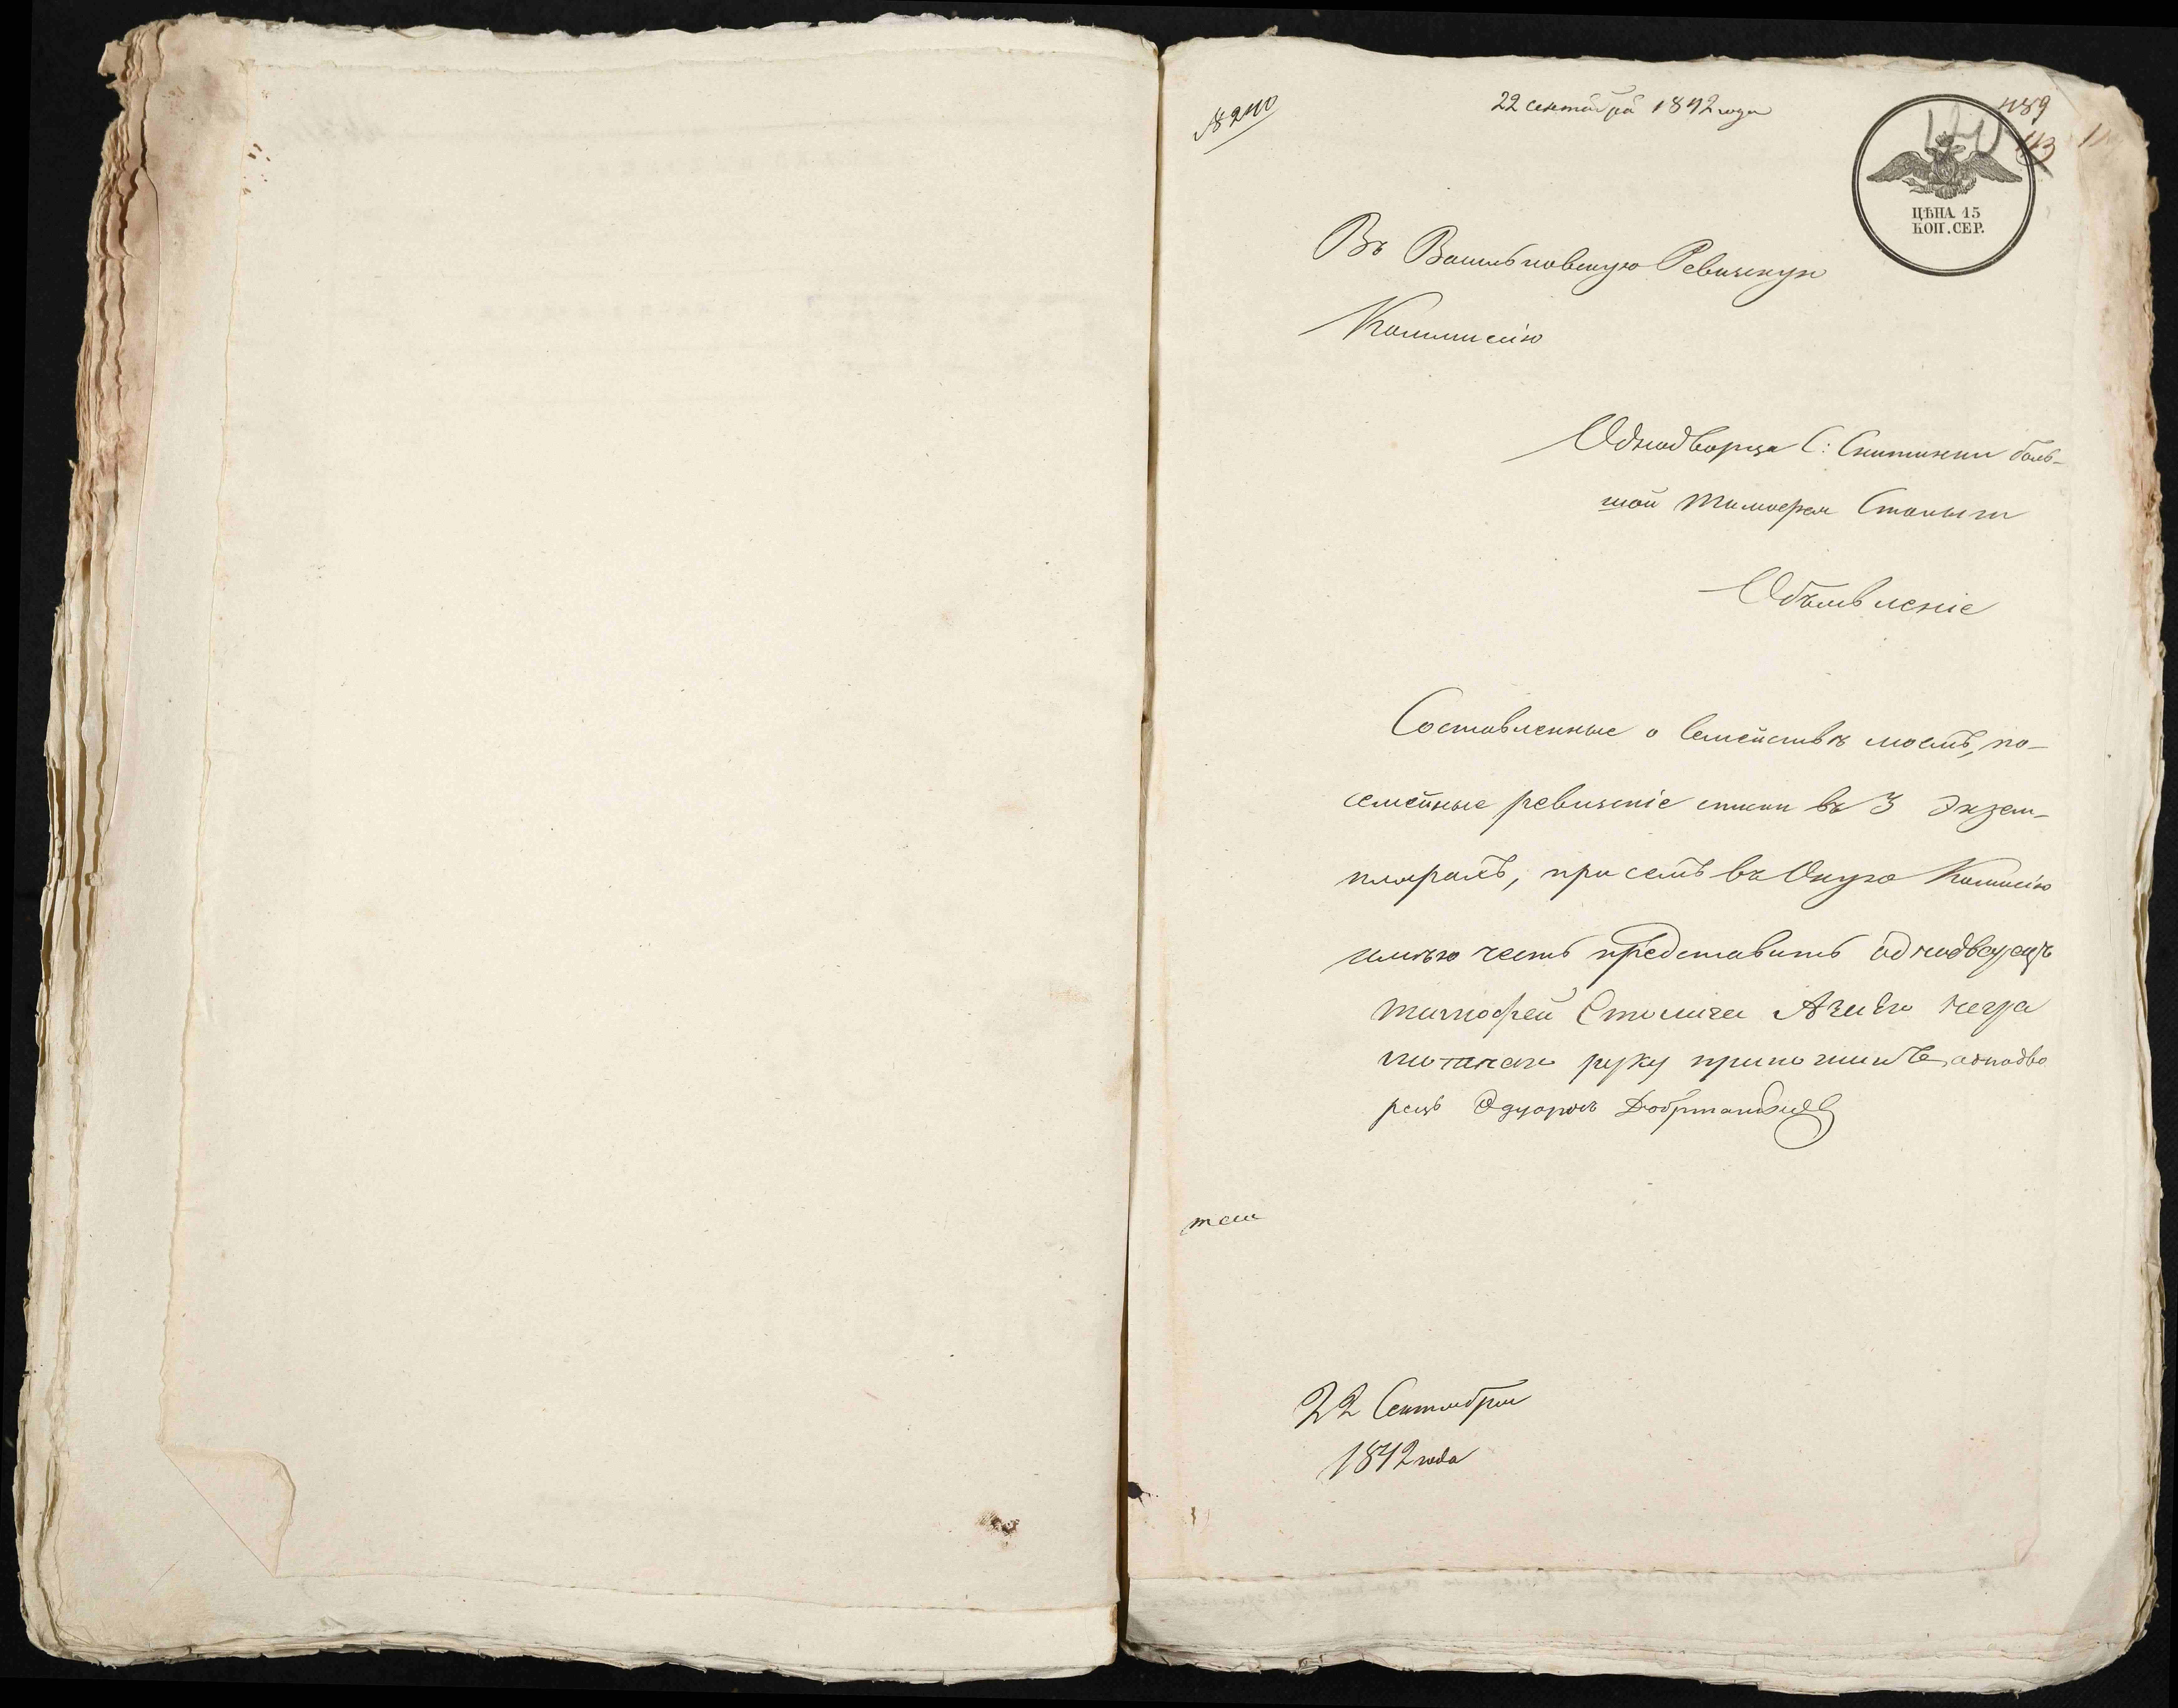 № 240
22 сентября 1842 года
489
113
ЦѢНА 15
КОП. СЕР.
Въ Васильковскую Ревизскую
Коммисію
Однодворца С: Снитинки боль-
шой Тимофея
Объявленіе
Составленные о Семействѣ моемъ, по-
семейные ревизскіе списки въ 3 экзем-
плярахъ, при семъ въ Оную Комисію
имѣю честь представить однодворецъ
Тимофей А за Его негра
мотнаго руку приложилъ однодво
рецъ Эдуардъ
22 Сентября
1842 года